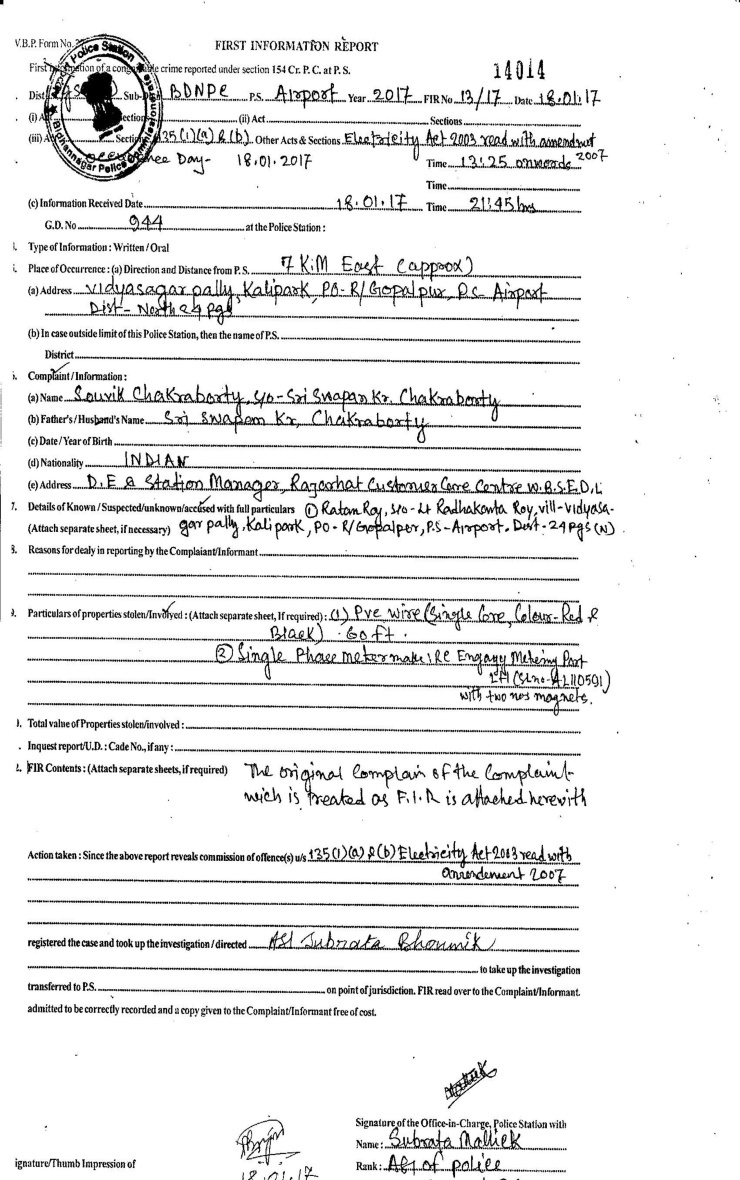 V.B.P. Form No.
FIRST INFORMATION REPORT
First Information of a cognizable crime reported under section 154 Cr. P. C. at P. S.
14014
Dist Sub- BDNPC P.S. Airport Year 2017 FIR No 13/17 Date 18.01.17
(i) Act Section (ii) Act Sections
(iii) Act Section 135(1)(a) & (b). Other Acts & Sections Electricity Act 2003 read with amendment 2007
Occurrence Day- 18.01.2017 Time 13:25 onwords
Time
(c) Information Received Date 18.01.17 Time 21:45 hrs
G.D. No 944 at the Police Station :
Type of Information : Written / Oral
Place of Occurrence : (a) Direction and Distance from P. S. 7 KiM East (approx)
(a) Address Vidyasagar pally, Kalipark, PO- R/Gopalpur, P.S. Airport
Dist- North 24 Pgs
(b) In case outside limit of this Police Station, then the name of P.S.
District
Complaint / Information :
(a) Name Souvik Chakraborty, S/o- Sri Swapan Kr. Chakraborty
(b) Father's / Husband's Name Sri Swapan Kr, Chakraborty
(c) Date / Year of Birth
(d) Nationality INDIAN
(e) Address D.E & Station Manager, Rajarhat Customer Care Centre W.B.S.E.D.L
7. Details of Known / Suspected/unknown/accused with full particulars ① Ratan Roy, S/o- Lt Radhakanta Roy, vill- Vidyasa-
(Attach separate sheet, if necessary) gar pally, Kalipark, PO- R/Gopalper, P.S- Airport. Dist- 24 Pgs (N)
8. Reasons for dealy in reporting by the Complaiant/Informant
9. Particulars of properties stolen/Involved : (Attach separate sheet, If required) : (1) Pvc wire (Single Core, Colour- Red &
Black) 60 ft.
② Single Phase meter make: RC Engagy Metering Pvt
Ltd (Sl no- AL110591)
with two nos magnets.
Total value of Properties stolen/involved :
Inquest report/U.D. : Cade No., if any :
FIR Contents : (Attach separate sheets, if required) The original Complain of the Complaint
wich is treated as F.I.R is attached herewith
Action taken : Since the above report reveals commission of offence(s) u/s 135(1)(a) & (b) Electricity Act 2003 read with
Amendement 2007
registered the case and took up the investigation / directed ASI Subrata Bhoumik
to take up the investigation
transferred to P.S. on point of jurisdiction. FIR read over to the Complaint/Informant.
admitted to be correctly recorded and a copy given to the Complaint/Informant free of cost.
Signature of the Office-in-Charge, Police Station with
Name : Subrata Mallick
ignature/Thumb Impression of
18.01.17
Rank : ASI of police